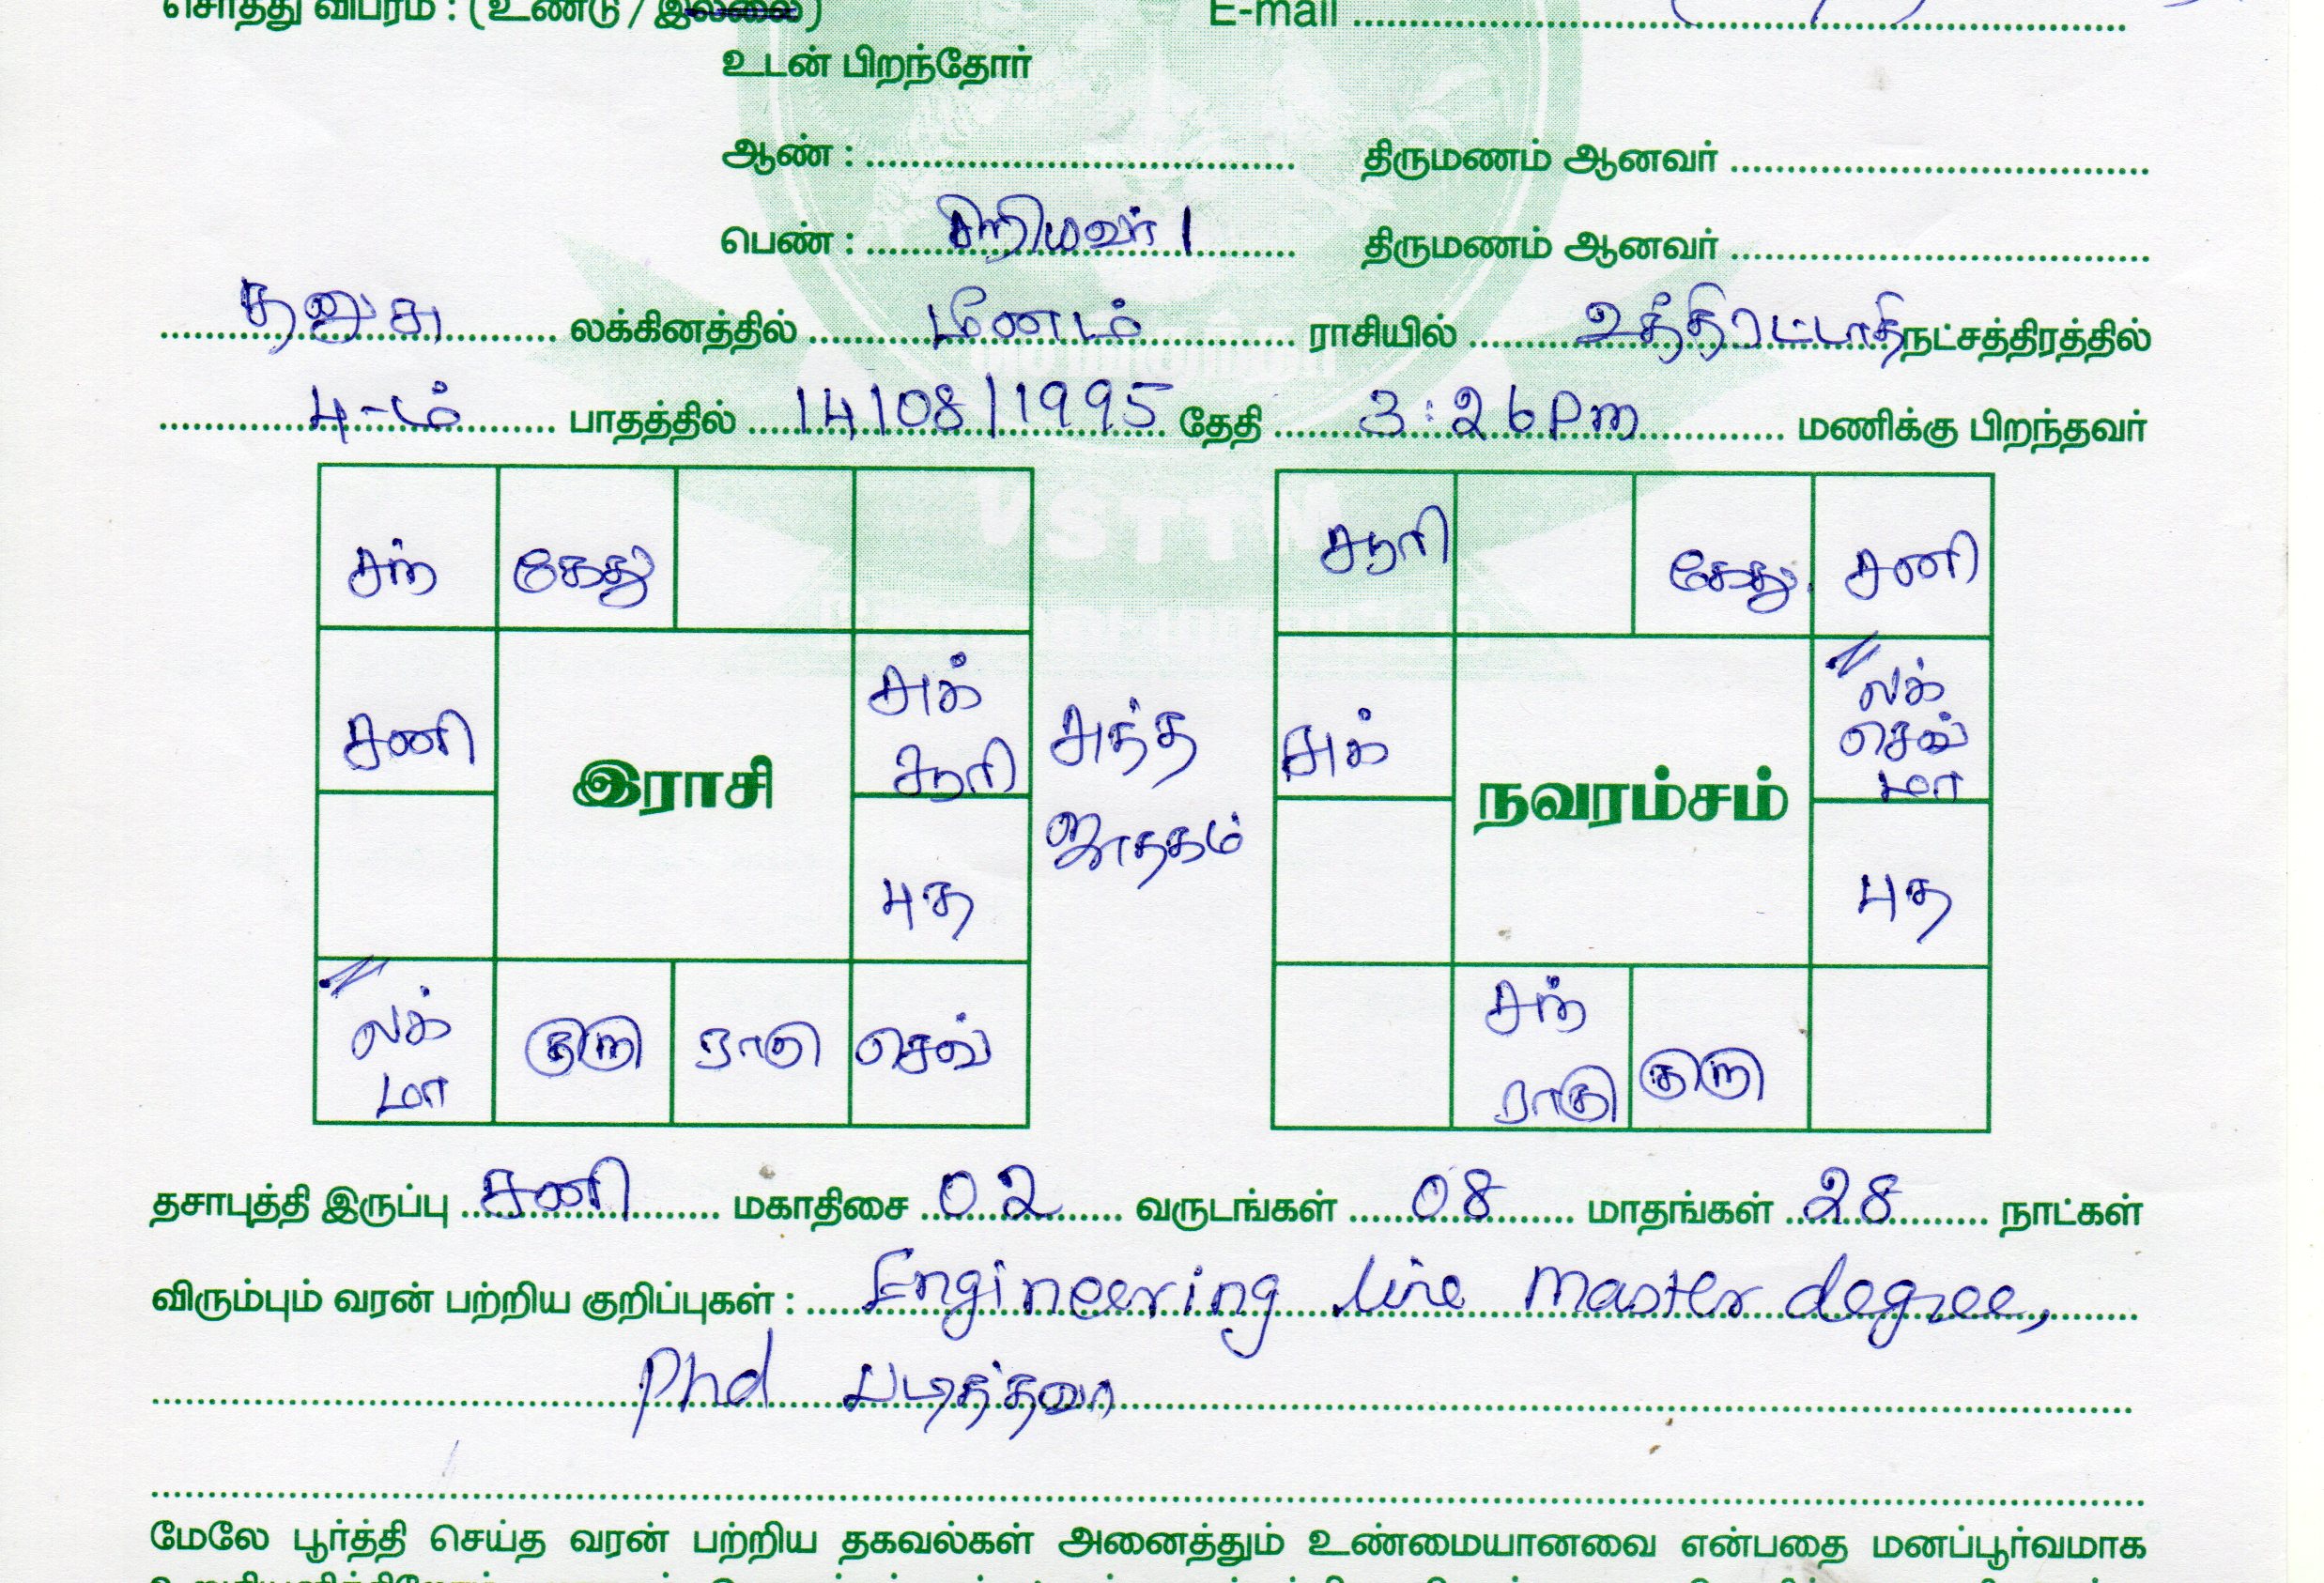 சொத்து விபரம் : (உண்டு / இல்லை) E-mail
உடன் பிறந்தோர்
ஆண் : திருமணம் ஆனவர்
பெண் : 1 திருமணம் ஆனவர்
தனுசு லக்கினத்தில் மீனம் ராசியில் உத்திரட்டாதி நட்சத்திரத்தில்
4-ம் பாதத்தில் 14/08/1995 தேதி 3:26 Pm மணிக்கு பிறந்தவர்
சந் கேது
சனி சுக் சூரி
இராசி
புத
லக் மா குரு ராகு செவ்
சுத்த ஜாதகம்
சூரி கேது சனி
சுக் லக் செவ் மா
நவரம்சம்
புத
சந் ராகு குரு
VSTTM
தசாபுத்தி இருப்பு சனி மகாதிசை 02 வருடங்கள் 08 மாதங்கள் 28 நாட்கள்
விரும்பும் வரன் பற்றிய குறிப்புகள் : Engineering line Master degree,
Phd படித்தவர்
மேலே பூர்த்தி செய்த வரன் பற்றிய தகவல்கள் அனைத்தும் உண்மையானவை என்பதை மனப்பூர்வமாக